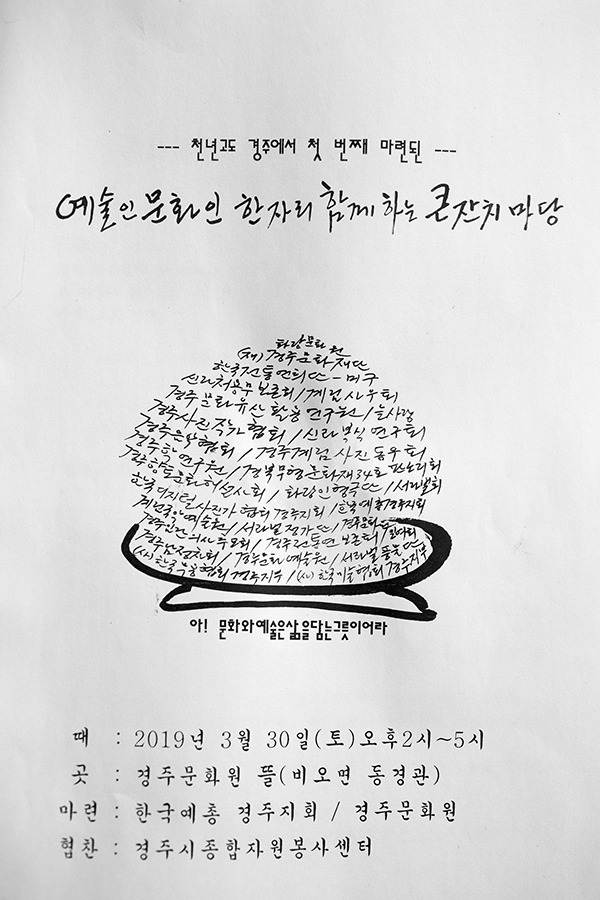 --- 천년고도 경주에서 첫 번째 마련된 ---
예술인 문화인 한자리 함께 하는 큰잔치 마당
화랑문화원
(재)경주문화재단
한국전통연희단-미구
신라처용무보존회/계림시우회
경주문화유산활용연구원/늘사랑
경주사진작가협회/신라복식연구회
경주음악협회/경주계림사진동우회
경주학연구원/경북무형문화재34호판소리회
경주향토문화해설사회/화랑인형극단/서라벌회
한국디지털사진가협회경주지회/한국예총경주지회
계림국악예술원/서라벌정가단/경주문화
경주인간 추모회/경주전통연 보존회/
경주남정회/경주문화예술원/서라벌풍물단
(사)한국무용협회경주지부/(사)한국미술협회경주지부
아! 문화와예술은삶을담는그릇이어라
때 : 2019년 3월 30일(토)오후2시~5시
곳 : 경주문화원 뜰(비오면 동경관)
마련 : 한국예총 경주지회 / 경주문화원
협찬 : 경주시종합자원봉사센터